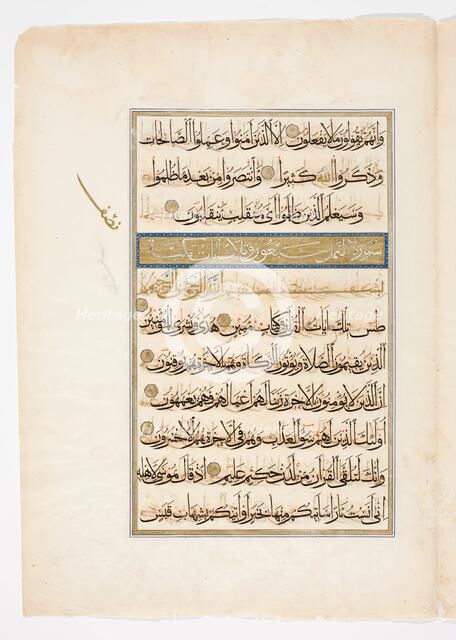 وَاَنَّهُمْ يَقُولُونَ مَا لَا يَفْعَلُونَ اِلَّا الَّذِينَ اٰمَنُوا وَعَمِلُوا الصَّالِحَاتِ
وَذَكَرُوا اللهَ كَثِيرًا وَانْتَصَرُوا مِنْ بَعْدِ مَا ظُلِمُوا
وَسَيَعْلَمُ الَّذِينَ ظَلَمُوا اَىَّ مُنْقَلَبٍ يَنْقَلِبُونَ
نصف
سورة النمل تسعون وثلاث ايات مكية
بسم الله الرحمن الرحيم
طس تِلْكَ اٰيَاتُ الْقُرْاٰنِ وَكِتَابٍ مُبِينٍ هُدًى وَبُشْرٰى لِلْمُؤْمِنِينَ
الَّذِينَ يُقِيمُونَ الصَّلَاةَ وَيُؤْتُونَ الزَّكَاةَ وَهُمْ بِالْاٰخِرَةِ هُمْ يُوقِنُونَ
اِنَّ الَّذِينَ لَا يُؤْمِنُونَ بِالْاٰخِرَةِ زَيَّنَّا لَهُمْ اَعْمَالَهُمْ فَهُمْ يَعْمَهُونَ
اُولٰئِكَ الَّذِينَ لَهُمْ سُوءُ الْعَذَابِ وَهُمْ فِي الْاٰخِرَةِ هُمُ الْاَخْسَرُونَ
وَاِنَّكَ لَتُلَقَّى الْقُرْاٰنَ مِنْ لَدُنْ حَكِيمٍ عَلِيمٍ اِذْ قَالَ مُوسٰى لِاَهْلِهِ
اِنِّي اٰنَسْتُ نَارًا سَاٰتِيكُمْ مِنْهَا بِخَبَرٍ اَوْ اٰتِيكُمْ بِشِهَابٍ قَبَسٍ